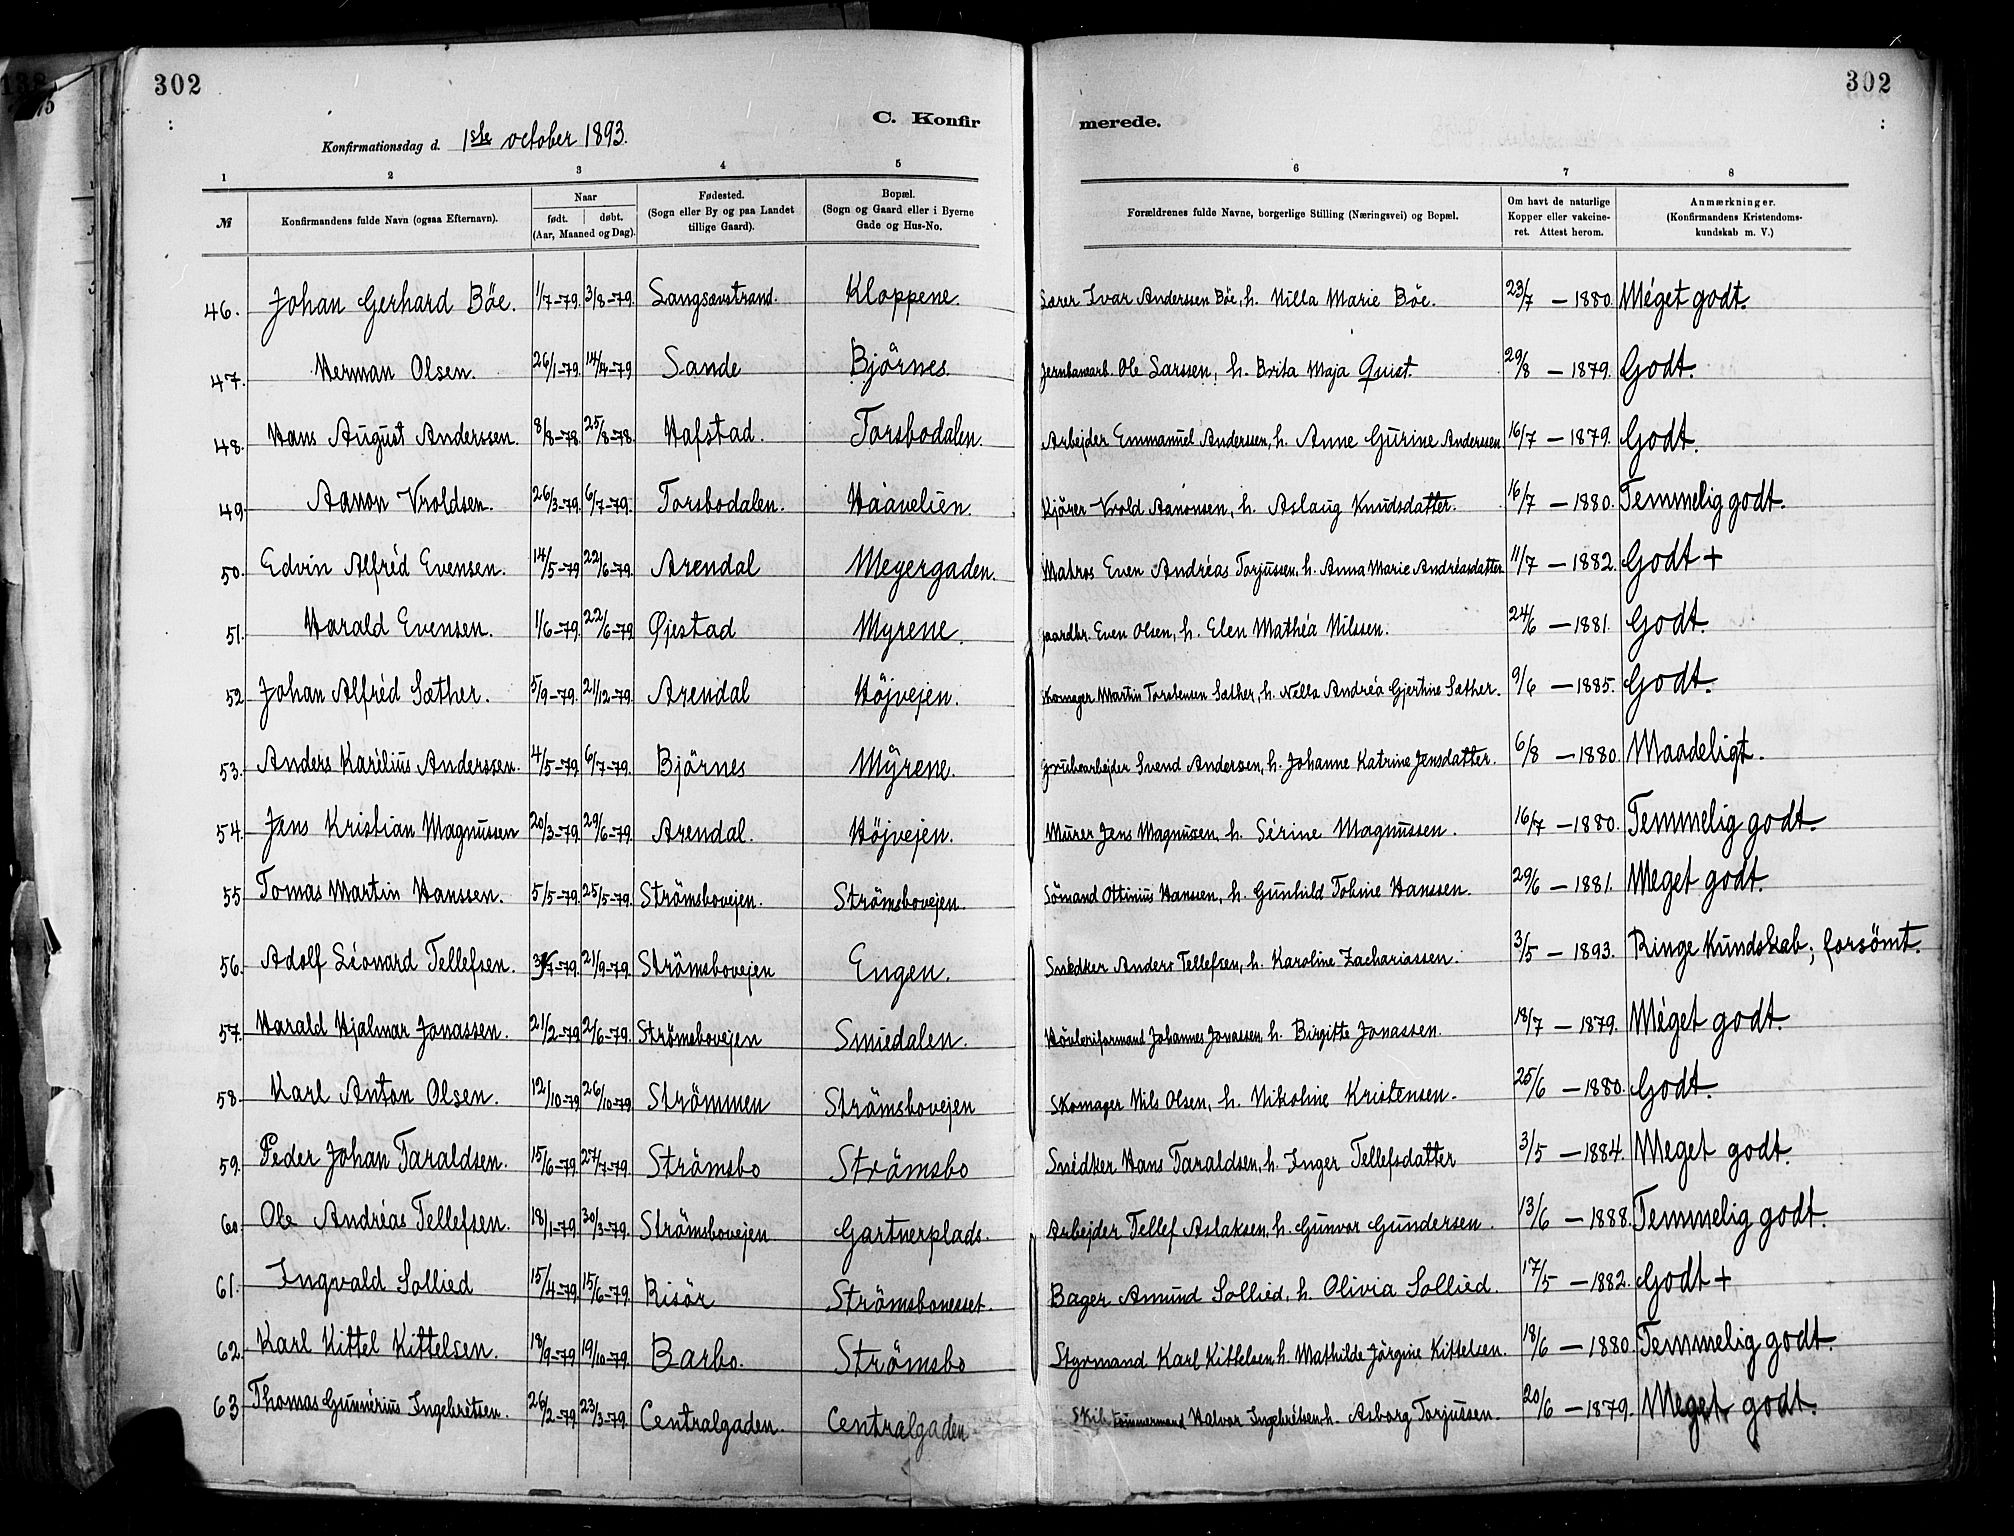 302
302
C. Konfir merede.
Konfirmationsdag d. 1ste october 1893.
1 2 3 4 5 6 7 8
№ Konfirmandens fulde Navn (ogsaa Efternavn). Naar født. døbt. (Aar, Maaned og Dag). Fødested. (Sogn eller By og paa Landet tillige Gaard). Bopæl. (Sogn og Gaard eller i Byerne Gade og Hus-No. Forældrenes fulde Navne, borgerlige Stilling (Næringsvei) og Bopæl. Om havt de naturlige Kopper eller vakcineret. Attest herom. Anmærkninger. (Konfirmandens Kristendomskundskab m. V.)
46. Johan Gerhard Böe. 1/7-79. 3/8-79. Langsævstrand. Kloppene. Ivar Anderssen Böe, h. Nilla Marie Böe. 23/7 - 1880. Méget godt.
47. Herman Olsen. 26/1-79. 14/4-79 Sande Björnes Jernbanearb. Ole Larssen, h. Brita Maja Quist. 29/8 - 1879. Godt.
48. Hans August Anderssen. 8/8-78. 25/8-78. Hafstad. Torsbodalen. Arbejder Emmanuel Anderssen, h. Anne Gurine Anderssen 16/7 - 1879. Godt.
49 Aanon Vroldsen. 26/3-79. 6/7-79. Torsbodalen. Haavelien. Kjörer Vrold Aanonsen, h. Aslaug Knudsdatter. 16/7 - 1880. Temmelig godt.
50. Edvin Alfréd Evensen. 14/5-79 22/6-79. Arendal Meyergaden. Matros Even Andréas Torjussen, h. Anna Marie Andréasdatter 11/7 - 1882. Godt +
51. Harald Evensen. 1/6-79. 22/6-79 Øjestad Myrene. Gaardbr. Even Olsen, h. Elen Mathéa Nilssen. 24/6 - 1881. Godt.
52 Johan Alfréd Sæther. 5/9-79. 21/12-79 Arendal Højvejen. Skomager Martin Torstensen Sæther, h. Nella Andréa Gjertine Sæther. 9/6 - 1885. Godt.
53. Anders Karélius Anderssen. 4/5-79 6/7-79. Björnes Myrene. Grubearbejder Svend Andersen, h. Johanne Katrine Jensdatter. 6/8 - 1880. Maadeligt.
54. Jens Kristian Magnussen 20/3-79. 29/6-79. Arendal. Höjvejen. Murer Jens Magnusen, h. Sérine Magnussen. 16/7 - 1880. Temmelig godt.
55 Tomas Martin Hanssen. 5/5-79. 25/5-79. Strömsbovejen. Strömsbovejen. Sömand Ottinius Hanssen, h. Gunhild Tobine Hanssen. 29/6 - 1881. Meget godt.
56. Adolf Léonard Tellefsen. 21/9-79. Strömsbovejen Engen. Snedker Anders Tellefsen, h. Karoline Zachariassen. 3/5 - 1893. Ringe Kundskab; forsömt.
57. Harald Hjalmar Jonassen. 21/2-79 2/6-79. Strömsbovejen Smiedalen. Hövleriformand Johannes Jonassen, h. Birgitte Jonassen. 18/7 - 1879. Méget godt.
58. Karl Anton Olsen. 12/10-79 26/10-79 Strömmen Strömsbovejen Skomager Nils Olsen, h. Nikoline Kristensen. 25/6 - 1880. Godt.
59. Peder Johan Taraldsen. 15/6-79. 27/7-79. Strömsbo Strömsbo Snédker Hans Taraldsen, h. Inger Tellefsdatter 3/5 - 1884. Meget godt.
60. Ole Andréas Tellefsen. 18/1-79. 30/3-79. Strömsbovejen Gartnerplads. Arbejder Tellef Aslaksen, h. Gunvor Gundersen. 13/6 - 1888. Temmelig godt.
61. Ingvald Sollied 15/4-79. 15/6-79. Risör Strömsbonesset. Bager Amund Sollied, h. Olivia Sollied. 17/5 - 1882. Godt +
62. Karl Kittel Kittelsen. 18/9-79 19/10-79. Barbo. Strömsbo Styrmand Karl Kittelsen h. Mathilde Jörgine Kittelsen. 18/6 - 1880. Temmelig godt.
63. Thomas Gunnérius Ingebretsen. 26/2-79 23/3-79. Centralgaden. Centralgaden Skibstömmermand Halvor Ingebrétsen h. Asborg Torjussen. 20/6 - 1879. Meget godt.